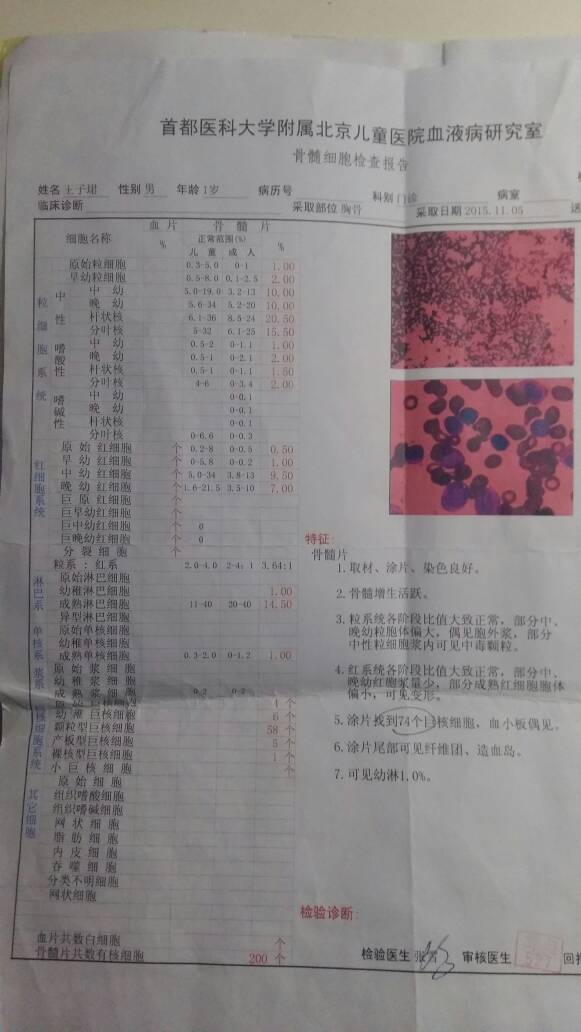 首都医科大学附属北京儿童医院血液病研究室
骨髓细胞检查报告
姓名 王子珺 性别 男 年龄 1岁 病历号 科别 门诊 病室
临床诊断 采取部位 胸骨 采取日期 2015.11.05 送
细胞名称 血片 % 骨髓片 正常范围(%) 儿童 成人 %
粒细胞系统
原始粒细胞 0.3-5.0 0-1 1.00
早幼粒细胞 0.5-8.0 0.1-2.5 2.00
中性 中幼 5.0-19.0 3.2-13 10.00
晚幼 5.6-34 5.2-20 10.00
杆状核 6.1-36 8.5-24 20.50
分叶核 5-32 6.1-25 15.50
嗜酸性 中幼 0.5-2 0-1.1 1.00
晚幼 0.5-1 0-2.1 2.00
杆状核 0.5-1 0-1.1 1.50
分叶核 4-6 0-3.4 2.00
嗜碱性 中幼 0-0.1
晚幼 0-0.1
杆状核 0-0.1
分叶核 0-6.6 0-0.3
红细胞系统
原始红细胞 个 0.2-8 0-0.5 0.50
早幼红细胞 个 0-5.8 0-0.2 1.00
中幼红细胞 个 5.0-34 3.8-13 9.50
晚幼红细胞 个 1.6-21.5 3.5-10 7.00
巨原红细胞 个
巨早幼红细胞 个
巨中幼红细胞 个 0
巨晚幼红细胞 个 0
分裂细胞 个
粒系：红系 2.0-4.0 2-4：1 3.64:1
淋巴系
原始淋巴细胞
幼稚淋巴细胞 1.00
成熟淋巴细胞 11-40 20-40 14.50
异型淋巴细胞
单核系
原始单核细胞
幼稚单核细胞
成熟单核细胞 0.3-2.0 0-1.2 1.00
浆系
原始浆细胞
幼稚浆细胞
成熟浆细胞 0-2 0-2
核细胞系统
幼稚巨核细胞 6 个
颗粒型巨核细胞 58 个
产板型巨核细胞 5 个
裸核型巨核细胞 1 个
小巨核细胞 个
其它细胞
原始细胞
组织嗜酸细胞
组织嗜碱细胞
网状细胞
脂肪细胞
内皮细胞
吞噬细胞
分类不明细胞
网状细胞
血片共数白细胞 个
骨髓片共数有核细胞 200 个
特征:
骨髓片
1. 取材、涂片、染色良好。
2. 骨髓增生活跃。
3. 粒系统各阶段比值大致正常，部分中、
晚幼粒胞体偏大，偶见胞外浆，部分
中性粒细胞浆内可见中毒颗粒。
4. 红系统各阶段比值大致正常，部分中、
晚幼红胞浆量少，部分成熟红细胞胞体
偏小，可见变形。
5. 涂片找到74个巨核细胞，血小板偶见。
6. 涂片尾部可见纤维团、造血岛。
7. 可见幼淋1.0%。
检验诊断:
检验医生 审核医生 回报